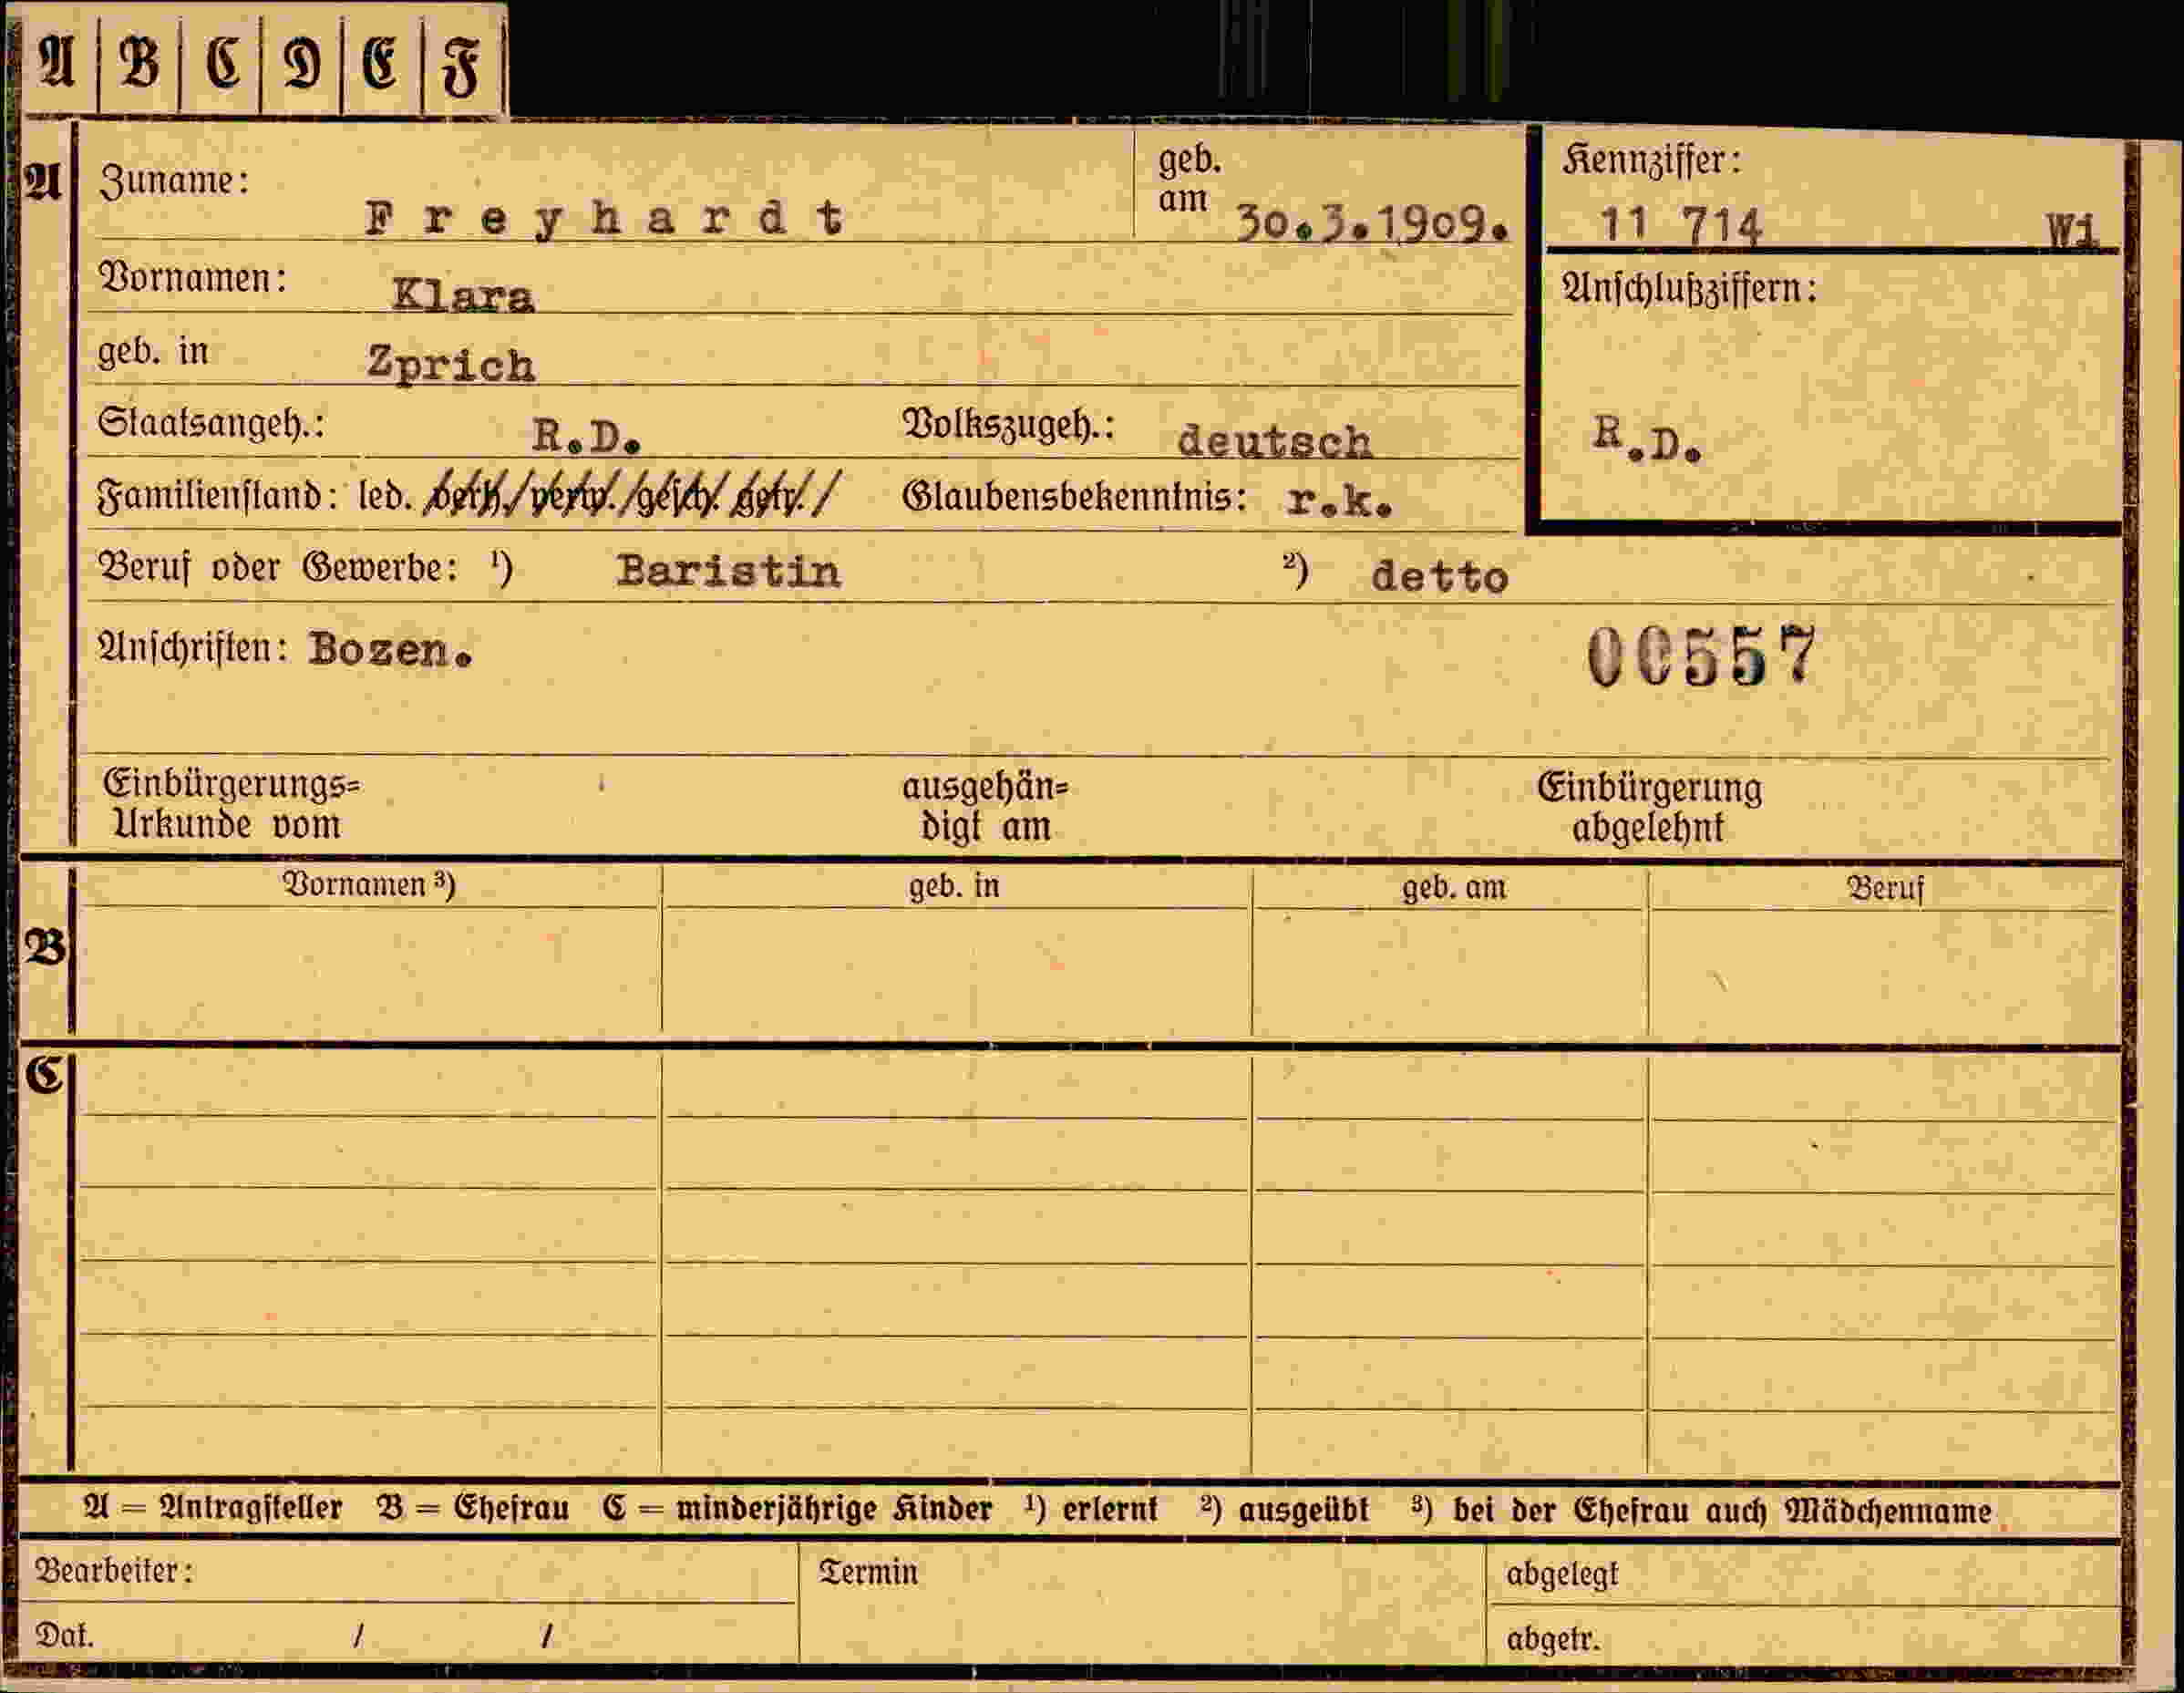 A B C D E F
A Zuname: Freyhardt geb. am 30.3.1909. Kennziffer: 11 714 Wi
Vornamen: Klara Anschlußziffern:
geb. in Zprich
Staatsangeh.: R.D. Volkszugeh.: deutsch R.D.
Familienstand: led. verh./verw./gesch./getr./ Glaubensbekenntnis: r.k.
Beruf oder Gewerbe: ¹) Baristin ²) detto
Anschriften: Bozen. 00557
Einbürgerungs= ausgehän= Einbürgerung
Urkunde vom digt am abgelehnt
Vornamen ³) geb. in geb. am Beruf
B
C
A = Antragsteller B = Ehefrau C = minderjährige Kinder ¹) erlernt ²) ausgeübt ³) bei der Ehefrau auch Mädchenname
Bearbeiter: Termin abgelegt
Dat. / / abgetr.